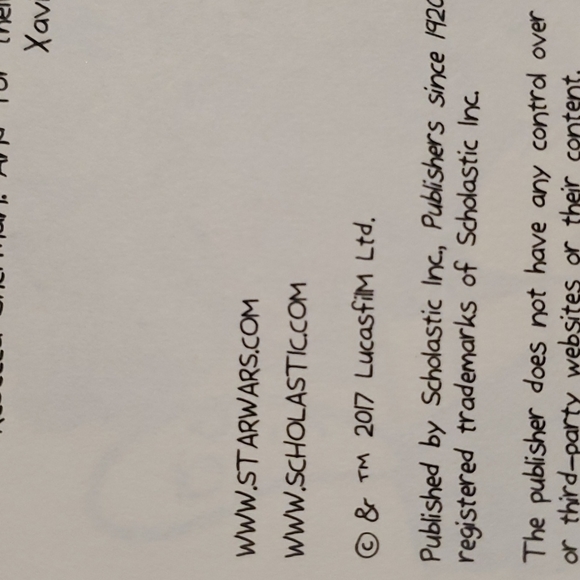 Xavi
WWW.STARWARS.COM
WWW.SCHOLASTIC.COM
© & TM 2017 Lucasfilm Ltd.
Published by Scholastic Inc., Publishers since 1920
registered trademarks of Scholastic Inc.
The publisher does not have any control over
or third-party websites or their content.